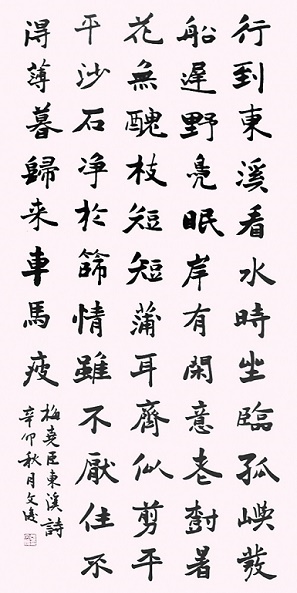 行到東溪看水時坐臨孤嶼發
船遲野鳧眠岸有閑意老樹著
花無醜枝短短蒲耳齊似剪平
平沙石净於篩情雖不厭住不
得薄暮歸来車馬疲
梅堯臣東溪詩
辛卯秋月文